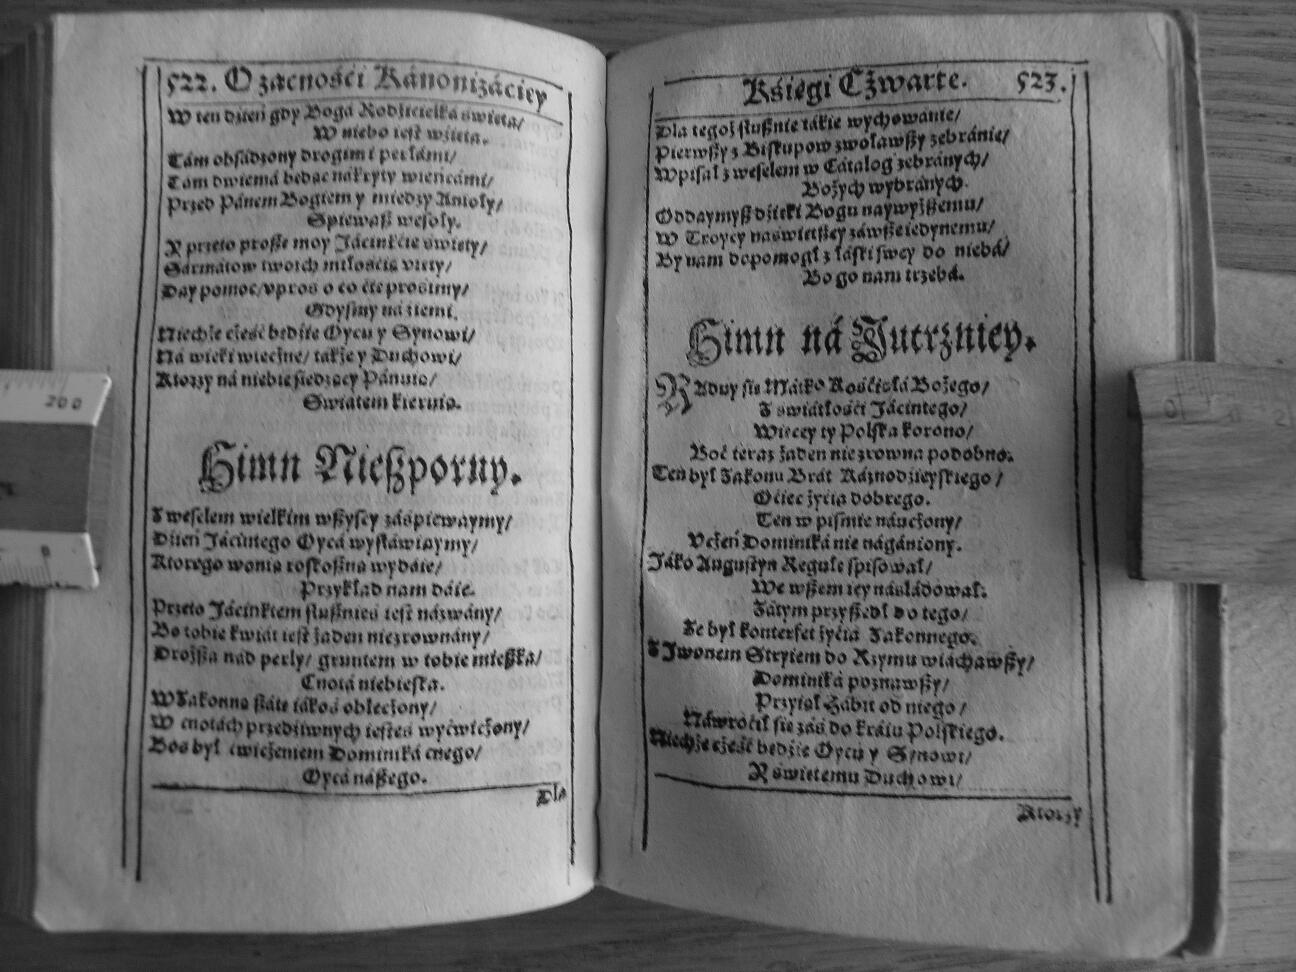 522. O zacnośći Kánonizáciey
W ten dźień gdy Bogá Rodźićielká święta/
W niebo iest wźięta.
Tám obsádzony drogimi perłámi/
Tám dwiemá będąc nákryty wieńcámi/
Przed Pánem Bogiem y między Anioły/
Spiewasz wesoły.
A przeto proszę moy Jácinkćie święty/
Sármatow twoich miłośćią
Day pomoc/ vproś o co ćię prośimy/
Gdysmy ná źiemi.
Niechże cześć będźie Oycu y Synowi/
Ná wieki wieczne/ tákże y Duchowi/
Ktorzy ná niebie siedzący Pánuią/
Swiátem kieruią.
Himn Nieszporny.
Z weselem wielkim wszyscy záśpiewaymy/
Dźień Jácintego Oycá wysławiaymy/
Ktorego wonia roskoszna wydáie/
Przykład nam dáie.
Przeto Jácinktem słusznieś iest názwány/
Bo tobie kwiát iest żaden niezrownány/
Droższa nád perły/ gruntem w tobie mieszka/
Cnotá niebieska.
W Zakonna száte iákoś obleczony/
W cnotách przedźiwnych iesteś wyćwiczony/
Boś był ćwiczeniem Dominiká cnego/
Oycá nászego.
Dla
Kśięgi Czwarte. 523.
Dla tegoż słusznie tákie wychowánie/
Pierwszy z Biskupow zwoławszy zebránie/
Wpisał z weselem w Cátalog zebránych/
Bożych wybránych.
Oddaymysz dźięki Bogu naywyższemu/
W Troycy naświętszey záwsze iedynemu/
By nam dopomogł z łáski swey do niebá/
Bo go nam trzebá.
Himn ná Jutrzniey.
RAduy się Mátko Kośćiołá Bożego/
Z światłośći Jácintego/
Więcey ty Polska korono/
Boć teraz żaden niezrowna podobno.
Ten był Zakonu Brát Káznodźieyskiego/
Oćiec żyćia dobrego.
Ten w piśmie náuczony/
Vczeń Dominiká nie nágániony.
Jáko Augustyn Regułę spisował/
We wszem iey náśládował.
Zátym przyszedł do tego/
Ze był konterfet żyćia Zakonnego.
Z Iwonem Stryiem do Rzymu wiáchawszy/
Dominiká poznawszy/
Przyiął Hábit od niego/
Náwroćił się záś do kráiu Polskiego.
Niechże cześć będźie Oycu y Synowi/
A świętemu Duchowi/
Ktorzy
200